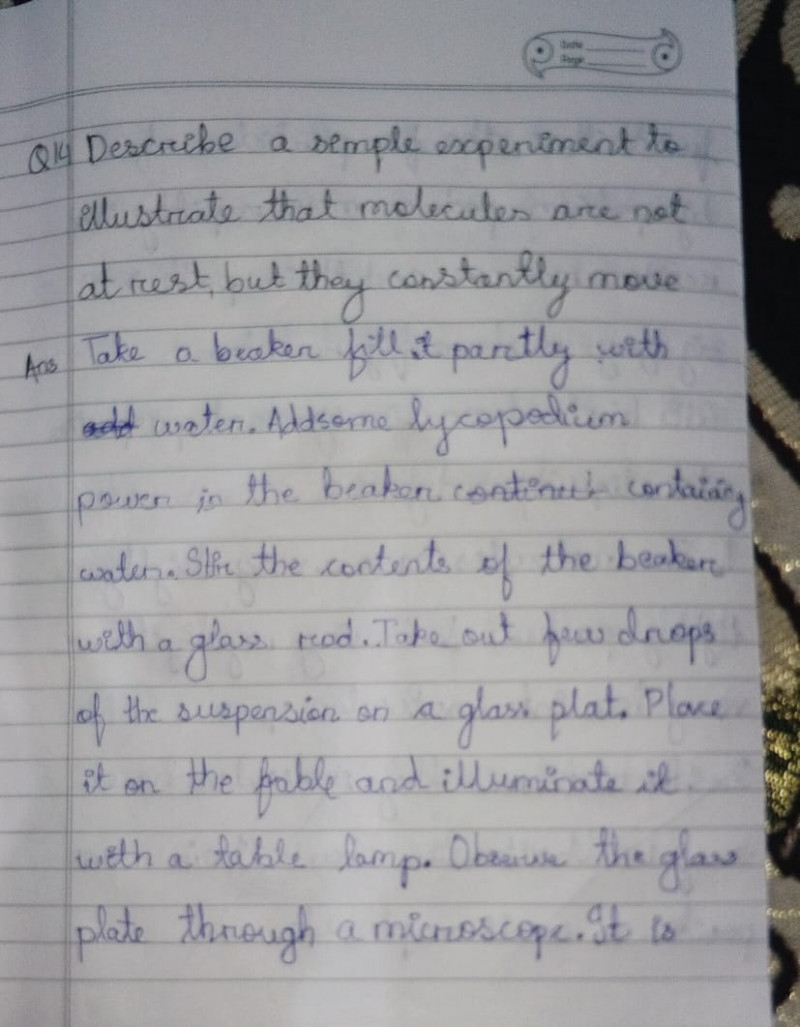 Date
Page
Q14 Describe a semple experiment to
illustrate that molecules are not
at rest, but they constantly move
Ans Take a beaker fill it partly with
add water. Addsome lycopodium
power in the beaker continer containing
water. Stir the contents of the beaker
with a glass rod. Take out few drops
of the suspension on a glass plat. Place
it on the fable and illuminate it
with a table lamp. Observe the glass
plate through a microscope. It is